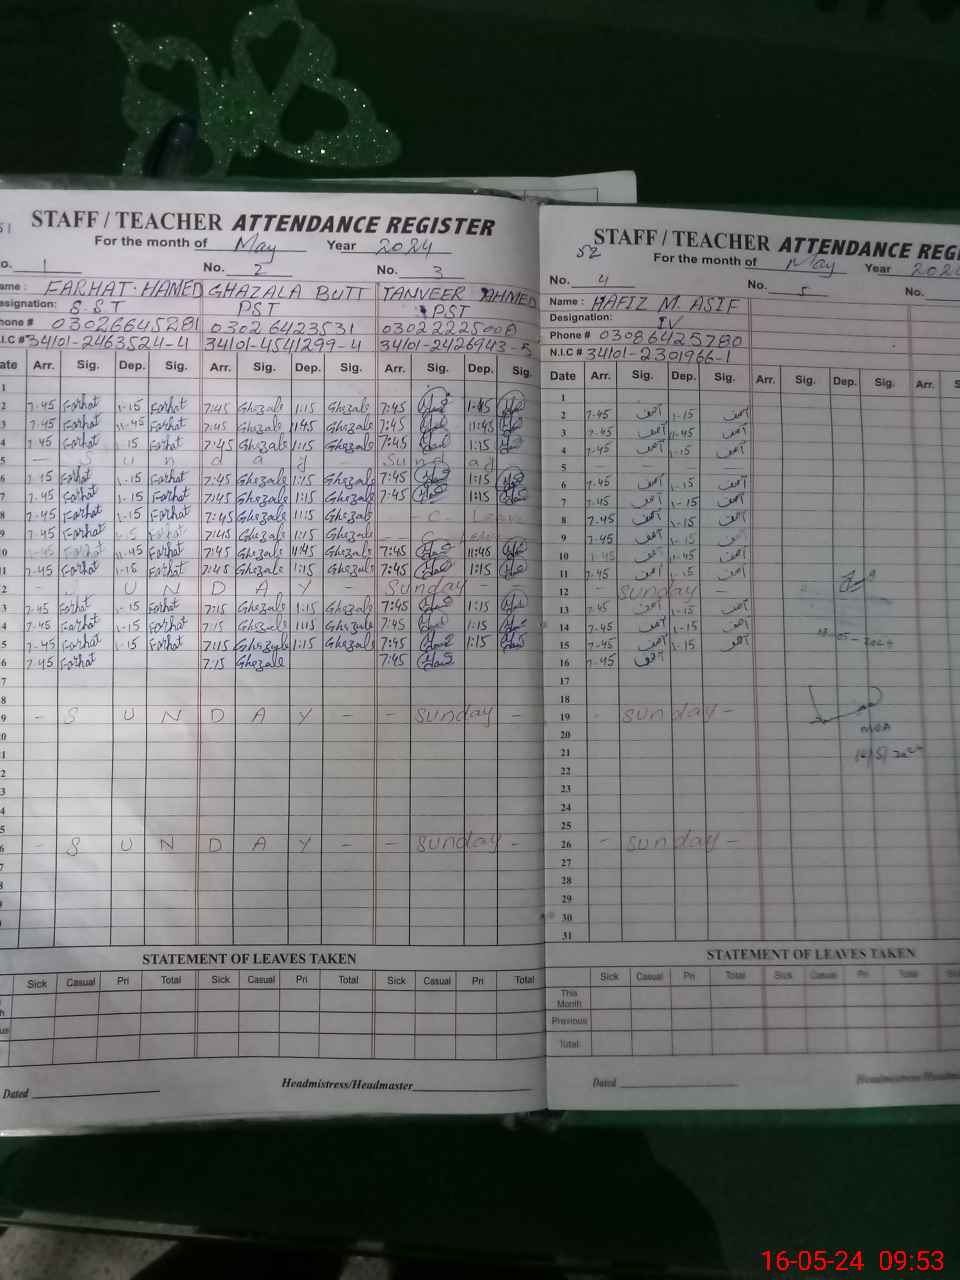 51
STAFF / TEACHER ATTENDANCE REGISTER
For the month of May Year 2024
No. 1 No. 2 No. 3
Name : FARHAT HAMED GHAZALA BUTT TANVEER AHMED
Designation: S.S.T PST PST
Phone # 03026645281 03026423531 03022225008
N.I.C # 34101-2463524-4 34101-4541299-4 34101-2426943-5
Date Arr. Sig. Dep. Sig. Arr. Sig. Dep. Sig. Arr. Sig. Dep. Sig.
1
2 7-45 Farhat 1-15 Farhat 7:45 Ghezale 1:15 Ghezale 7:45 1:15
3 7-45 Farhat 11-45 Farhat 7:45 Ghezale 11:45 Ghezale 7:45 11:45
4 7-45 Farhat 1-15 Farhat 7:45 Ghezale 1:15 Ghezale 7:45 1:15
5 - S u n d a y - Sunday
6 7-45 Farhat 1-15 Farhat 7:45 Ghezale 1:15 Ghezale 7:45 1:15
7 7-45 Farhat 1-15 Farhat 7:45 Ghezale 1:15 Ghezale 7:45 1:15
8 7-45 Farhat 1-15 Farhat 7:45 Ghezale 1:15 Ghezale - C - Leave
9 7-45 Farhat Farhat 7:45 Ghezale 1:15 Ghezale - C - Leave
10 7-45 Farhat 11-45 Farhat 7:45 Ghezale 11:45 Ghezale 7:45 11:45
11 7-45 Farhat 1-15 Farhat 7:45 Ghezale 1:15 Ghezale 7:45 1:15
12 - U N D A Y - Sunday -
13 7-45 Farhat 1-15 Farhat 7:15 Ghezale 1:15 Ghezale 7:45 1:15
14 7-45 Farhat 1-15 Farhat 7:15 Ghezale 1:15 Ghezale 7:45 1:15
15 7-45 Farhat 1-15 Farhat 7:15 Ghezale 1:15 Ghezale 7:45 1:15
16 7-45 Farhat 7:15 Ghezale 7:45
7
8
9 - S U N D A Y - - Sunday -
20
1
2
3
4
5
6 - S U N D A Y - - Sunday -
7
8
9
STATEMENT OF LEAVES TAKEN
Sick Casual Pri Total Sick Casual Pri Total Sick Casual Pri Total
Dated
Headmistress/Headmaster
52
STAFF / TEACHER ATTENDANCE REG
For the month of May Year 2024
No. 4 No. 5 No.
Name : HAFIZ M. ASIF
Designation: IV
Phone # 03086425780
N.I.C # 34101-2301966-1
Date Arr. Sig. Dep. Sig. Arr. Sig. Dep. Sig. Arr.
1
2 7-45 آصف 1-15 آصف
3 7-45 آصف 11-45 آصف
4 7-45 آصف 1-15 آصف
5 - - - -
6 7-45 آصف 1-15 آصف
7 7-45 آصف 1-15 آصف
8 7-45 آصف 1-15 آصف
9 7-45 آصف 1-15 آصف
10 7-45 آصف 11-45 آصف
11 7-45 آصف 1-15 آصف
12 - Sunday -
13 7-45 آصف 1-15 آصف
14 7-45 آصف 1-15 آصف
15 7-45 آصف 1-15 آصف
16 7-45 آصف
17
18
19 - Sunday -
20
21
22
23
24
25
26 - Sunday -
27
28
29
30
31
-05-2024
STATEMENT OF LEAVES TAKEN
Sick Casual Pri Total Sick Casual Pri Total
This Month
Previous
Total
Dated
Headmistress/Headma
16-05-24 09:53